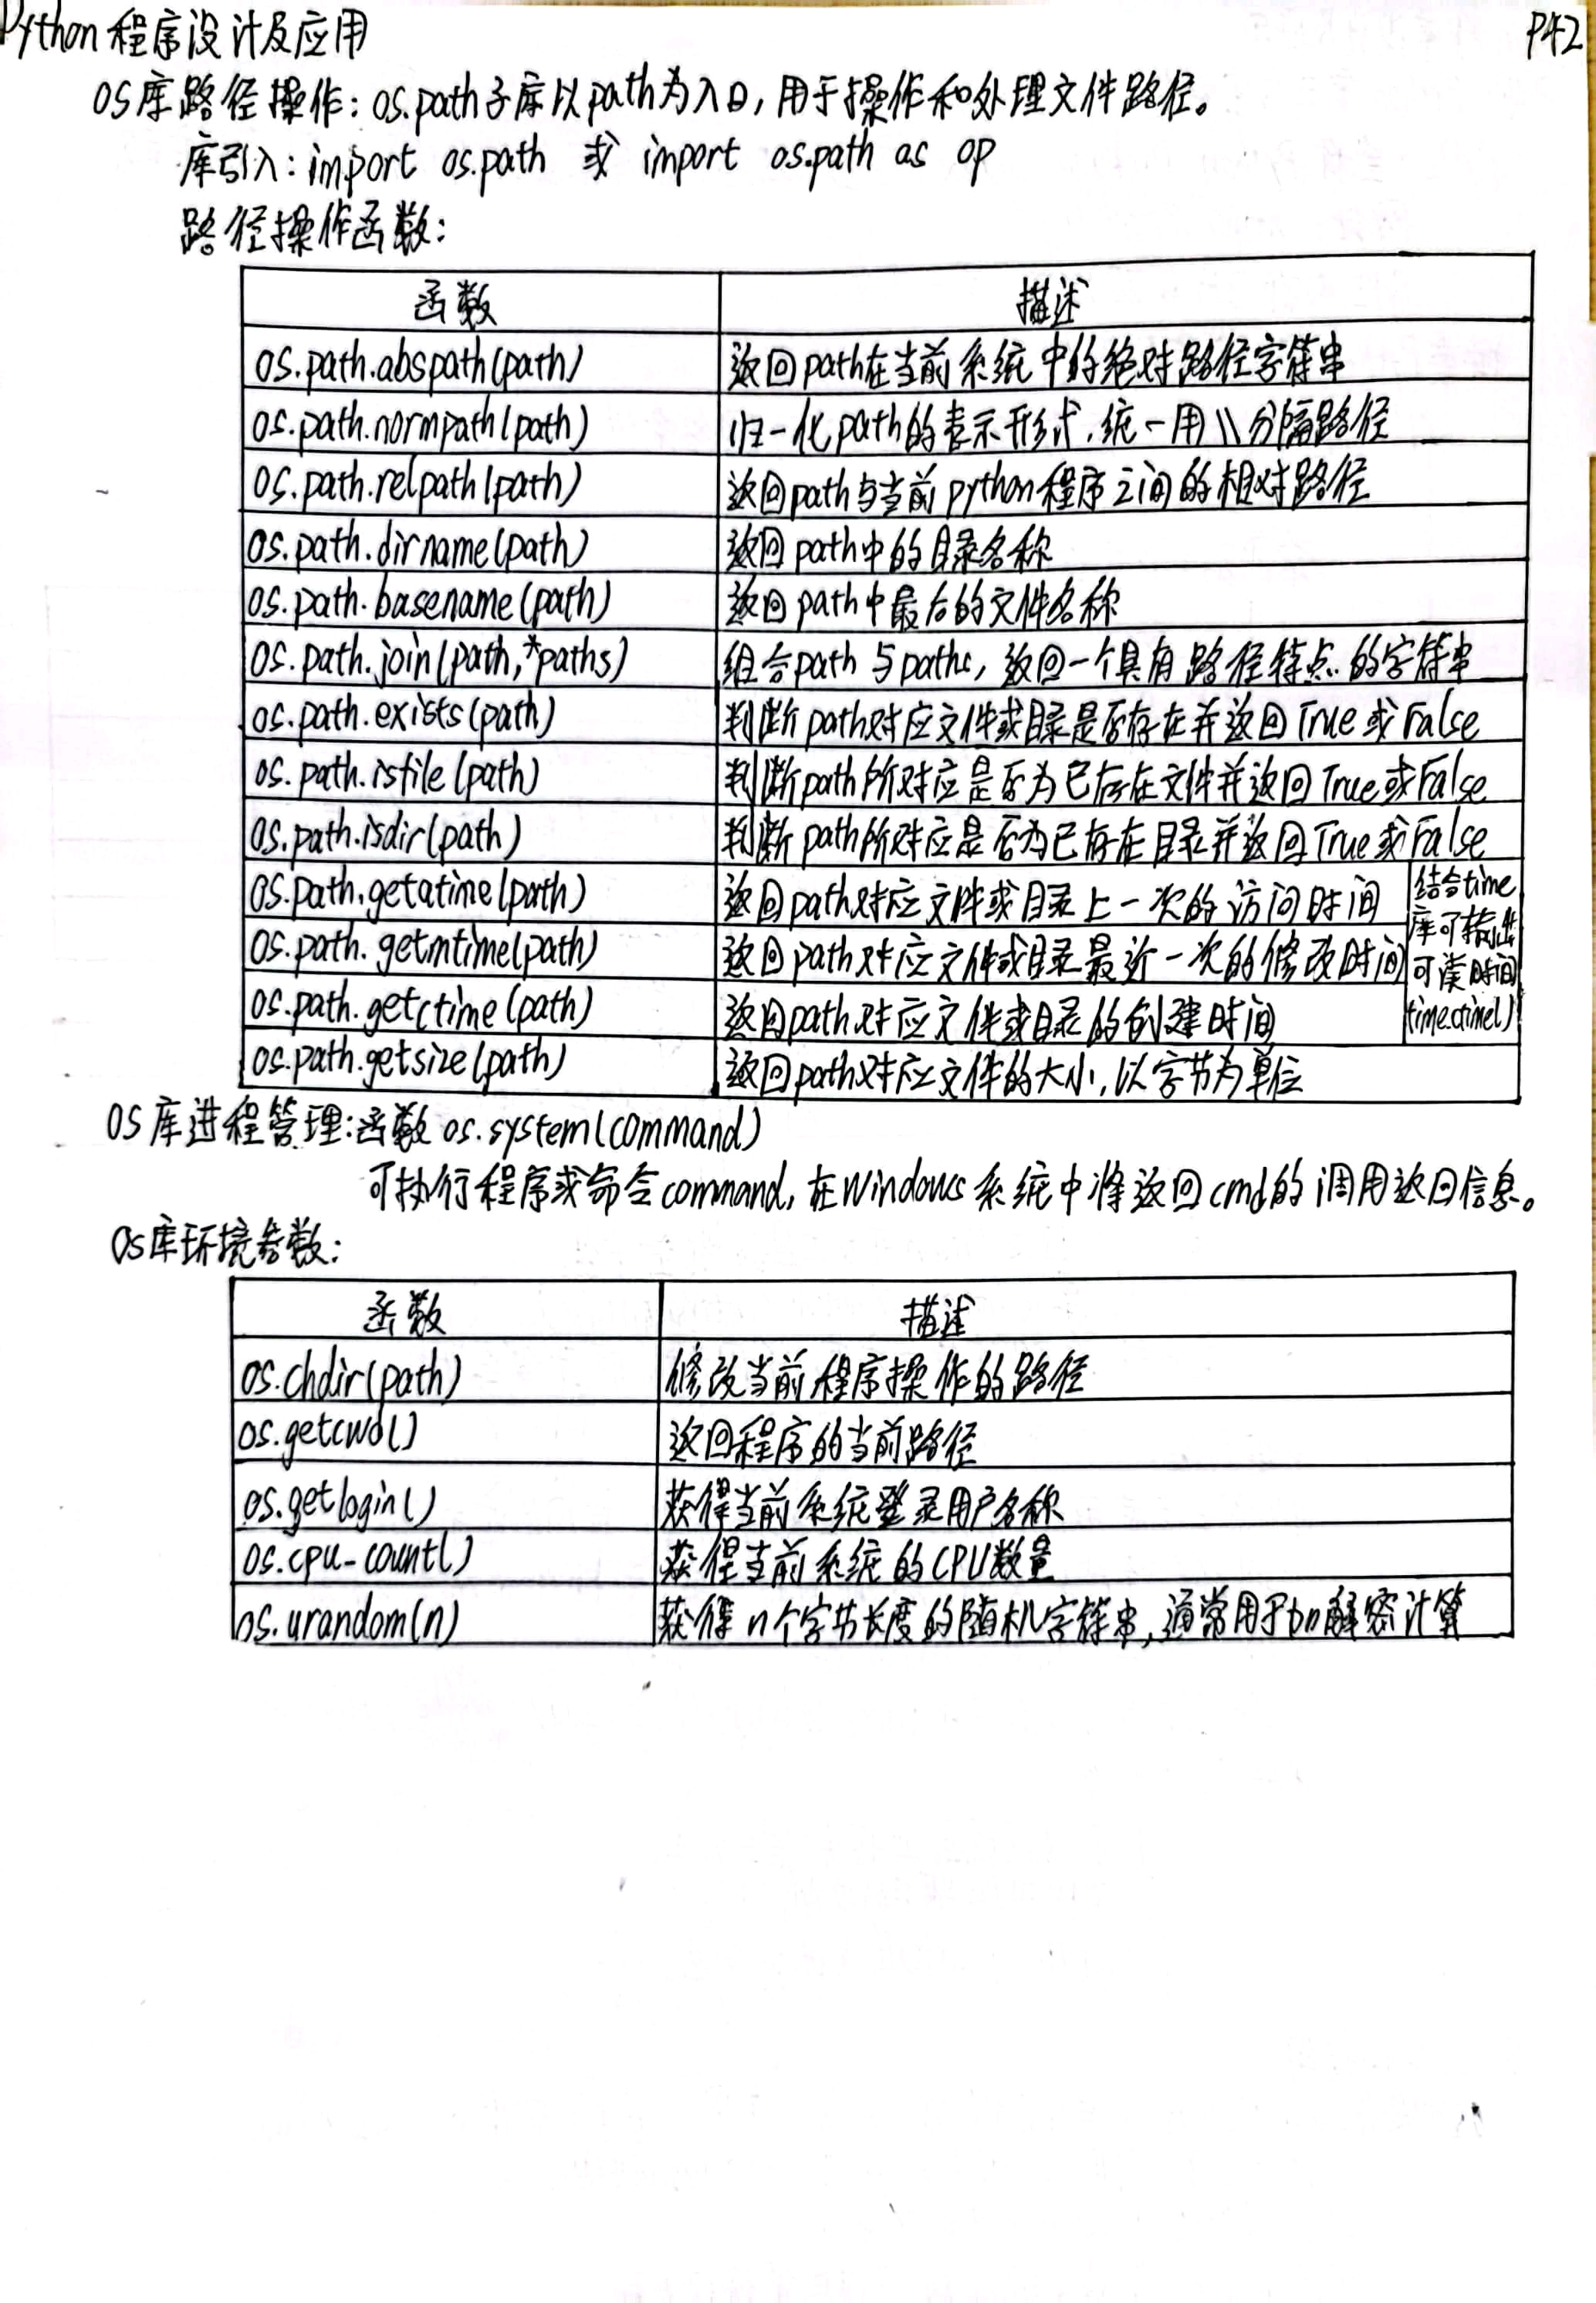 Python程序设计及应用 P42
OS库路径操作：os.path子库以path为入口，用于操作和处理文件路径。
库引入：import os.path 或 import os.path as op
路径操作函数：
函数 描述
os.path.abspath(path) 返回path在当前系统中的绝对路径字符串
os.path.normpath(path) 归一化path的表示形式，统一用\\分隔路径
os.path.relpath(path) 返回path与当前python程序之间的相对路径
os.path.dirname(path) 返回path中的目录名称
os.path.basename(path) 返回path中最后的文件名称
os.path.join(path,*paths) 组合path与paths，返回一个具有路径特点的字符串
os.path.exists(path) 判断path对应文件或目录是否存在并返回True或False
os.path.isfile(path) 判断path所对应是否为已存在文件并返回True或False
os.path.isdir(path) 判断path所对应是否为已存在目录并返回True或False
os.path.getatime(path) 返回path对应文件或目录上一次的访问时间 结合time
os.path.getmtime(path) 返回path对应文件或目录最近一次的修改时间 库可输出
os.path.getctime(path) 返回path对应文件或目录的创建时间 可读时间
time.ctime()
os.path.getsize(path) 返回path对应文件的大小，以字节为单位
OS库进程管理：函数os.system(command)
可执行程序或命令command，在Windows系统中将返回cmd的调用返回信息。
OS库环境参数：
函数 描述
os.chdir(path) 修改当前程序操作的路径
os.getcwd() 返回程序的当前路径
os.getlogin() 获得当前系统登录用户名称
os.cpu-count() 获得当前系统的CPU数量
os.urandom(n) 获得n个字节长度的随机字符串，通常用于加解密计算